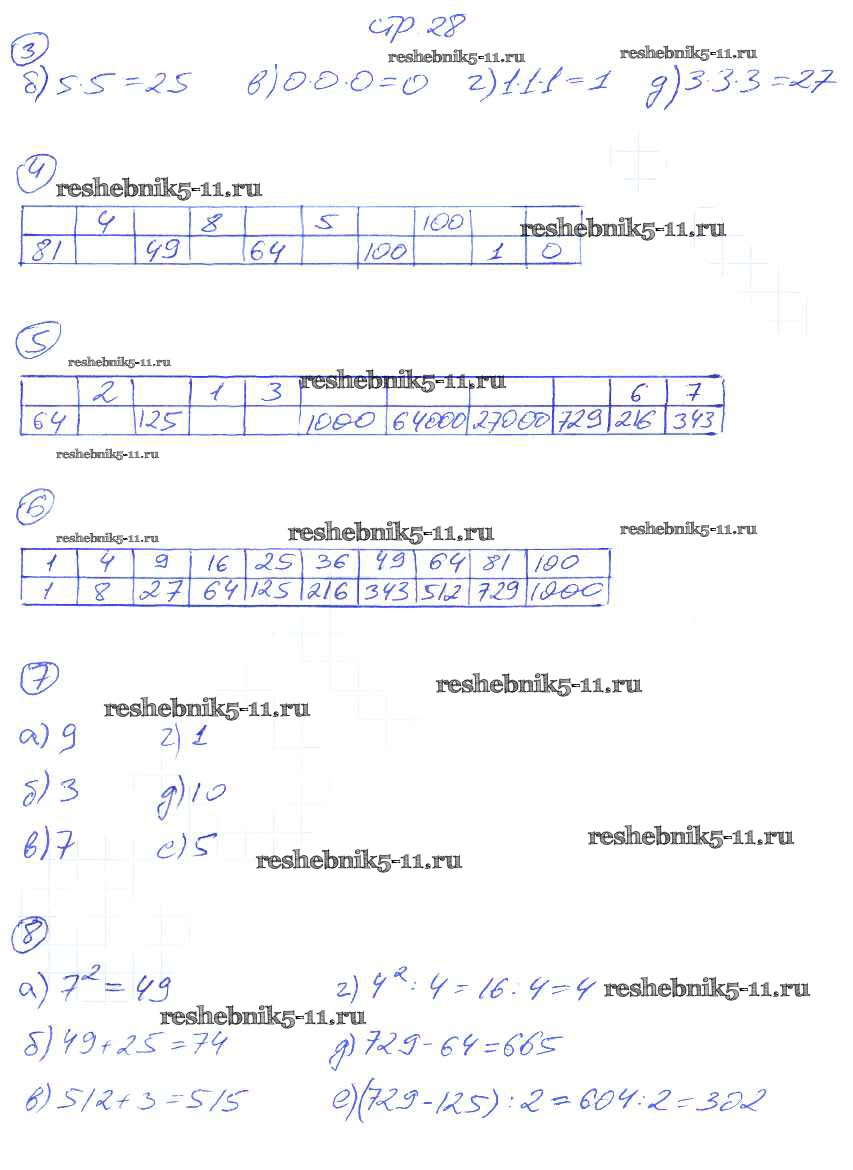 стр. 28
③
reshebnik5-11.ru reshebnik5-11.ru
б) 5·5=25 в) 0·0·0=0 г) 1·1·1=1 д) 3·3·3=27
④
reshebnik5-11.ru
4 8 5 100
reshebnik5-11.ru
81 49 64 100 1 0
⑤
reshebnik5-11.ru
reshebnik5-11.ru
2 1 3 6 7
64 125 1000 64000 27000 729 216 343
reshebnik5-11.ru
⑥
reshebnik5-11.ru reshebnik5-11.ru reshebnik5-11.ru
1 4 9 16 25 36 49 64 81 100
1 8 27 64 125 216 343 512 729 1000
⑦
reshebnik5-11.ru
reshebnik5-11.ru
а) 9 г) 1
б) 3 д) 10
в) 7 е) 5
reshebnik5-11.ru
reshebnik5-11.ru
⑧
а) 7²=49 г) 4²:4=16:4=4
reshebnik5-11.ru
reshebnik5-11.ru
б) 49+25=74 д) 729-64=665
в) 512+3=515 е) (729-125):2=604:2=302